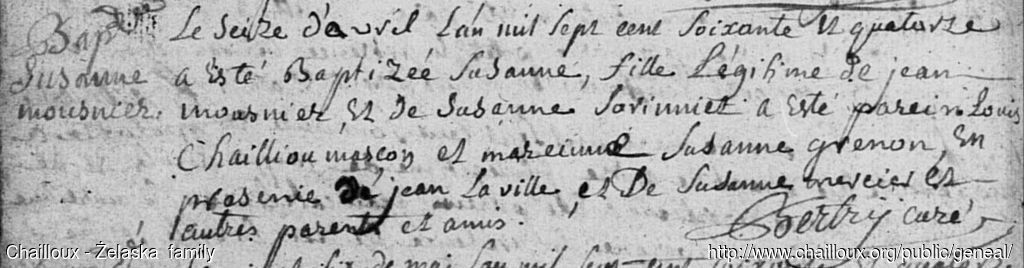 Bap
Susanne
mousnier.
Le seize d'avril L'an mil sept cent soixante et quatorze
a esté Baptizéé susanne, fille Légitime de jean
mousnier, Et de susanne savinniet a esté parein Louis
Chailliou masçon et mareinne susanne grenon, En
presenie de jean Laville, et De susanne mercier et
autres parents et amis. curé
Chailloux - Żelaska family
http://www.chailloux.org/public/geneal/